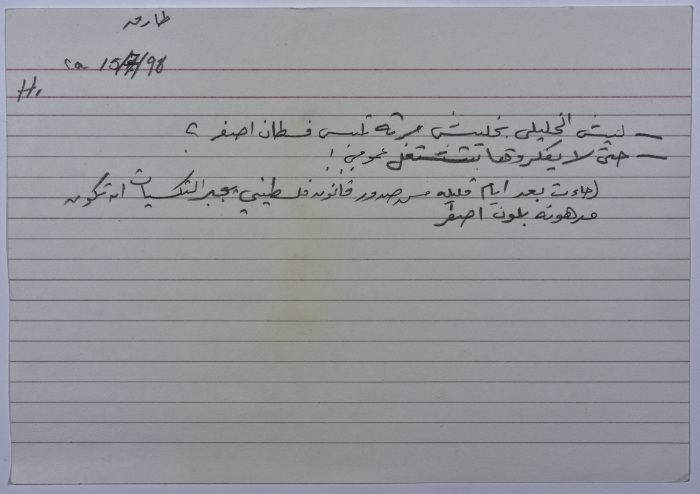 طارق
ca 15/7/98
H.
— ليش الخليلي بخليش مرته تلبس فسطان اصفر ؟
— حتى لا يفكروها بتشتغل عمومي !
(جاءت بعد ايام قليله من صدور قانون فلسطيني يجبر التكسيات ان تكون
مدهونة بلون اصفر